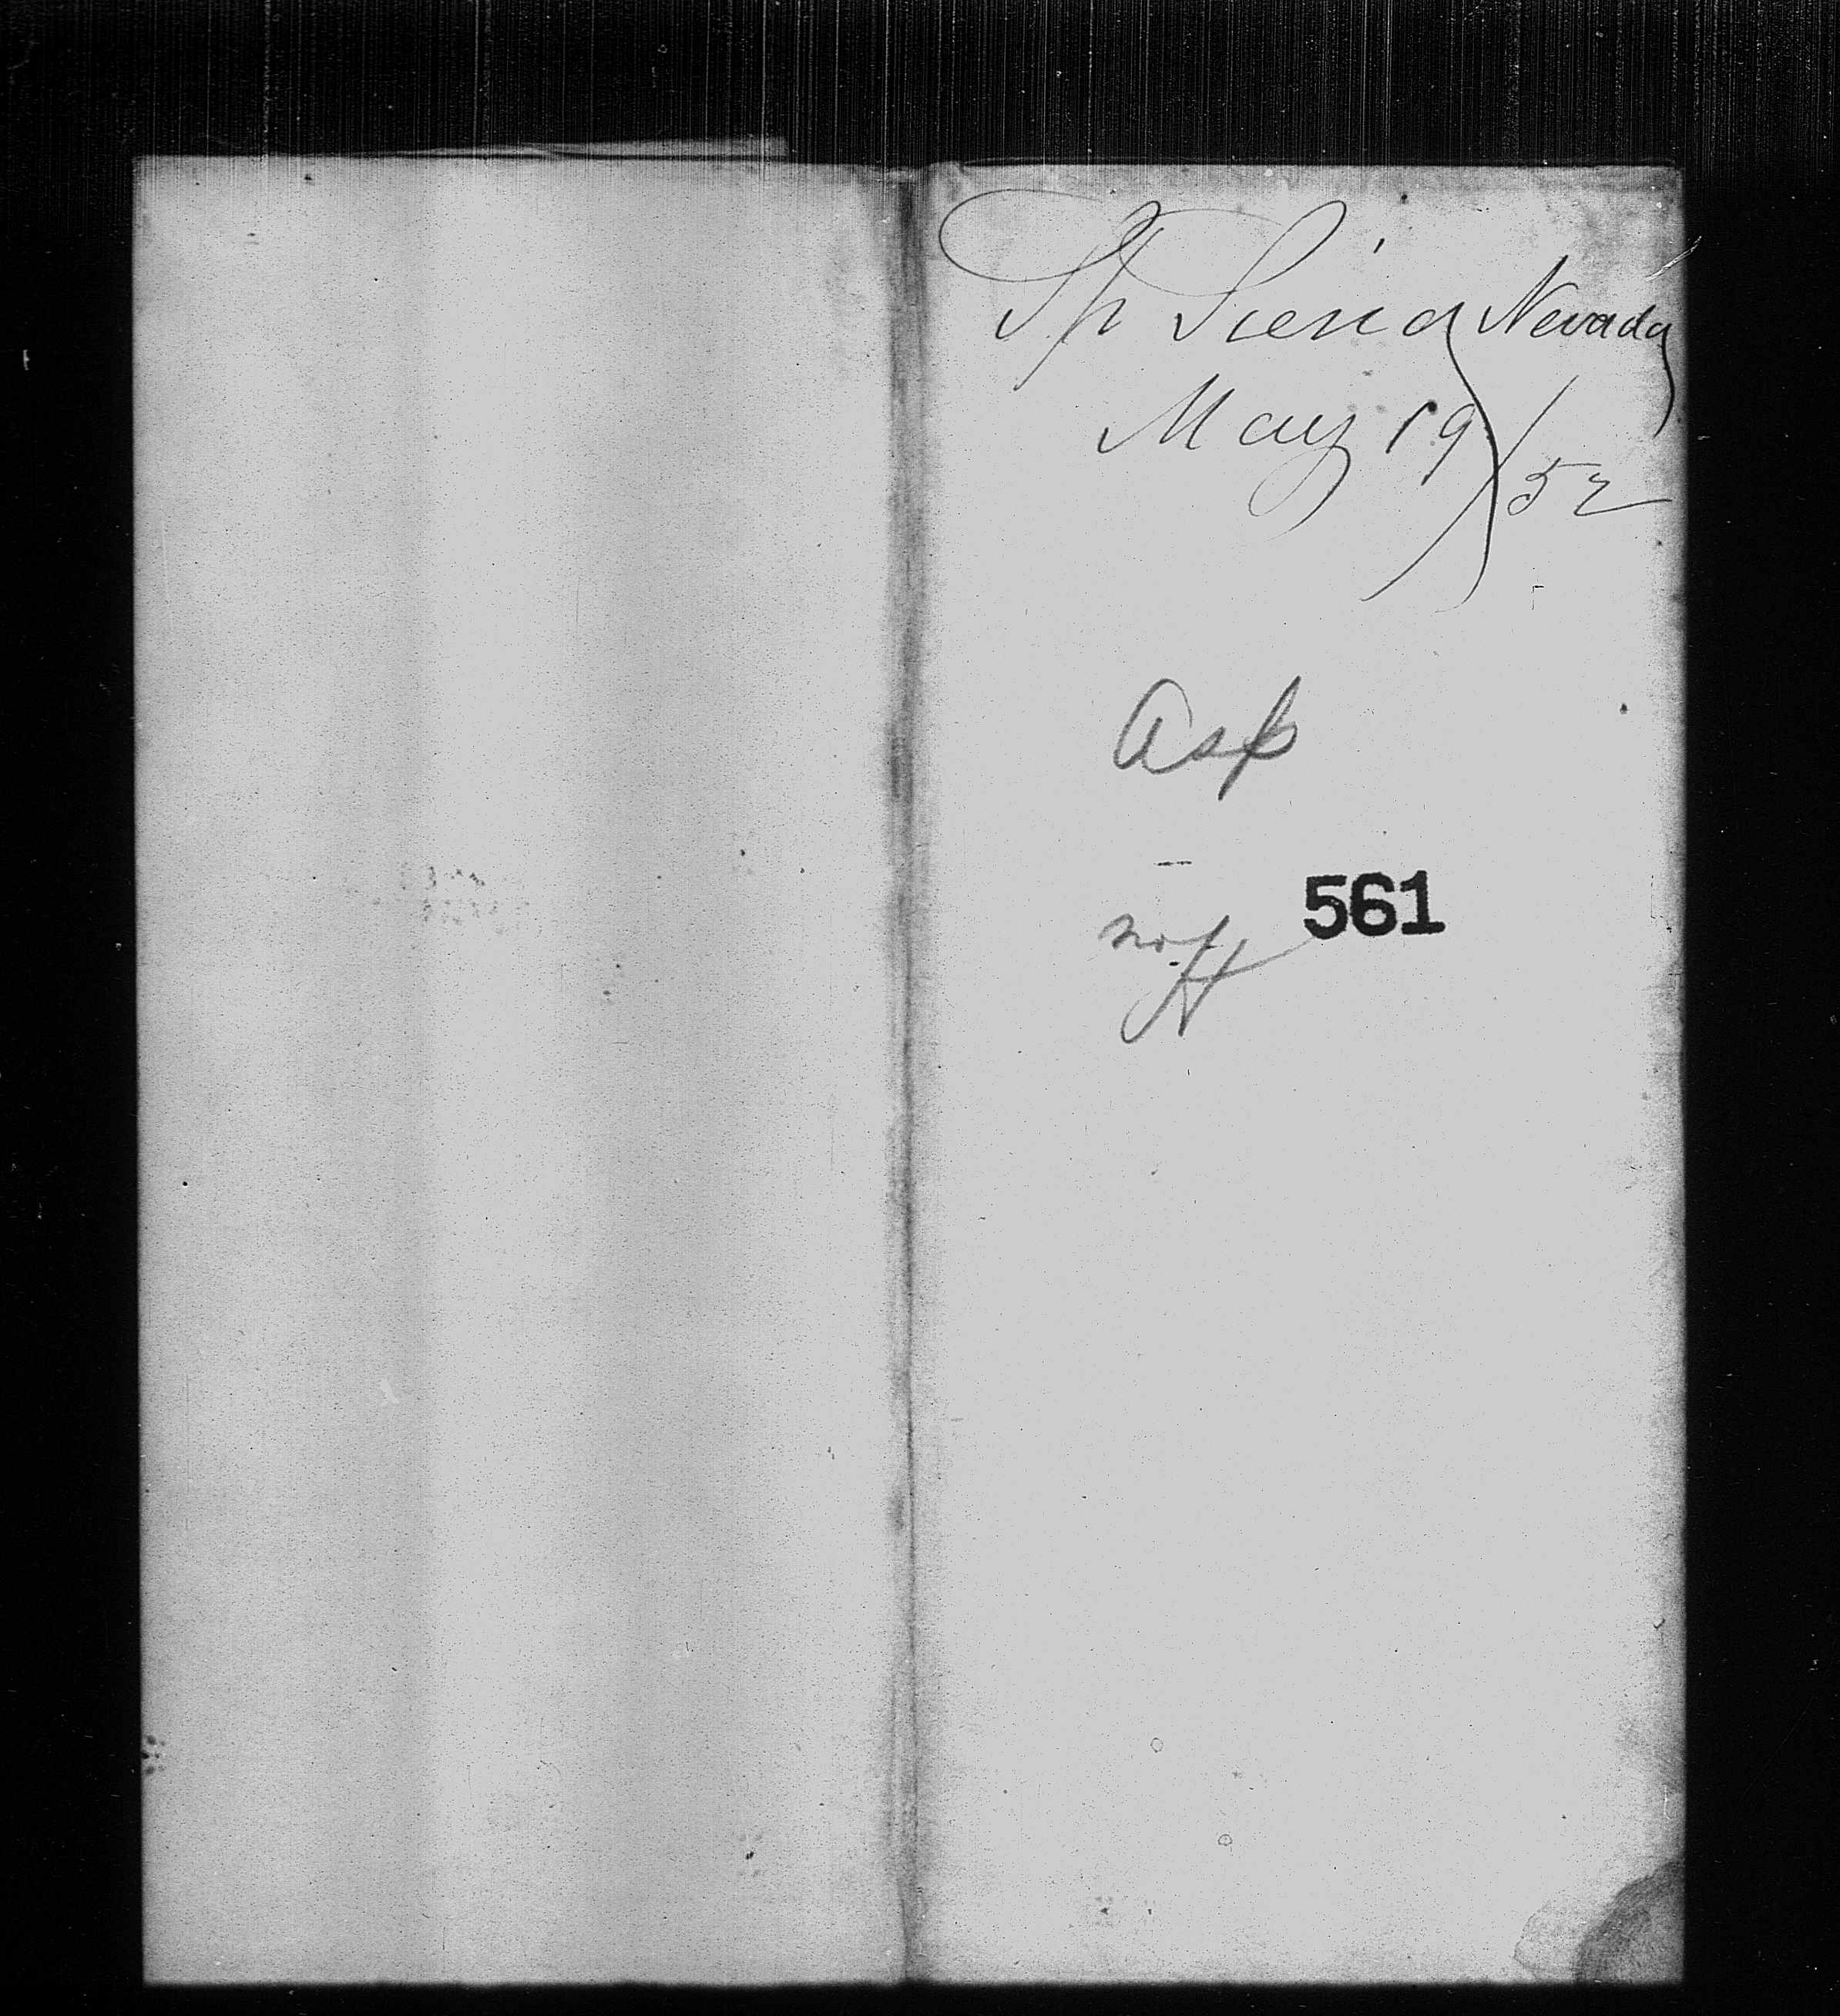 Sp Siera Nevada
May 19/52
Asp
561